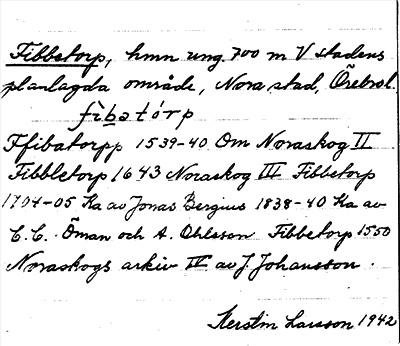 Fibbetorp, hmn ung. 700 m V stadens
planlagda område, Nora stad, Örebro l.
fìbatórp
Ffibatorpp 1539-40 Om Noraskog II
Fibbletorp 1643 Noraskog III Fibbetorp
1704-05 Ka av Jonas Bergius 1838-40 Ka av
C.C. Öman och A. Ohlsson Fibbetorp 1550
Noraskogs arkiv IV av J. Johansson.
Kerstin Larsson 1942